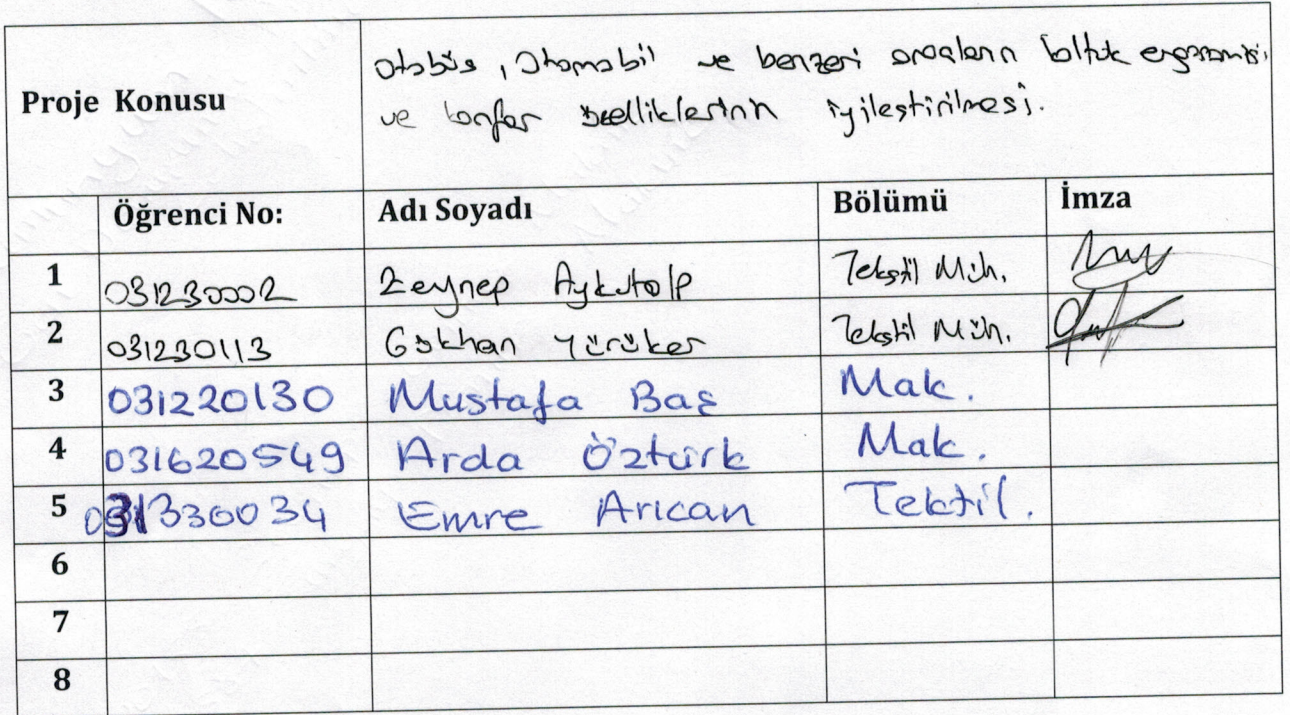 Proje Konusu
Otobüs, Otomobil ve benzeri araçların koltuk ergonomisi
ve konfor özelliklerinin iyileştirilmesi.
Öğrenci No: Adı Soyadı Bölümü İmza
1 031230002 Zeynep Aykutalp Tekstil Müh.
2 031230113 Gökhan Yürüker Tekstil Müh.
3 031220130 Mustafa Baş Mak.
4 031620549 Arda Öztürk Mak.
5 031330034 Emre Arıcan Tektil.
6
7
8